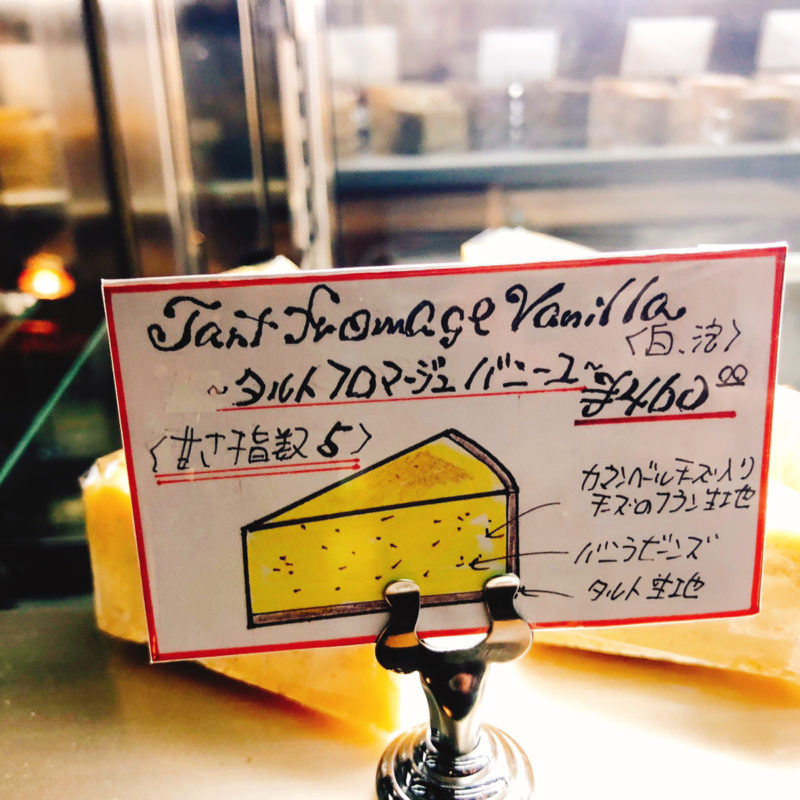 Tart fromage Vanilla
〈白、泡〉
~タルトフロマージュ バニーユ~
¥460.00
〈甘さ指数 5〉
カマンベールチーズ入り
チーズのフラン生地
バニラビーンズ
タルト生地